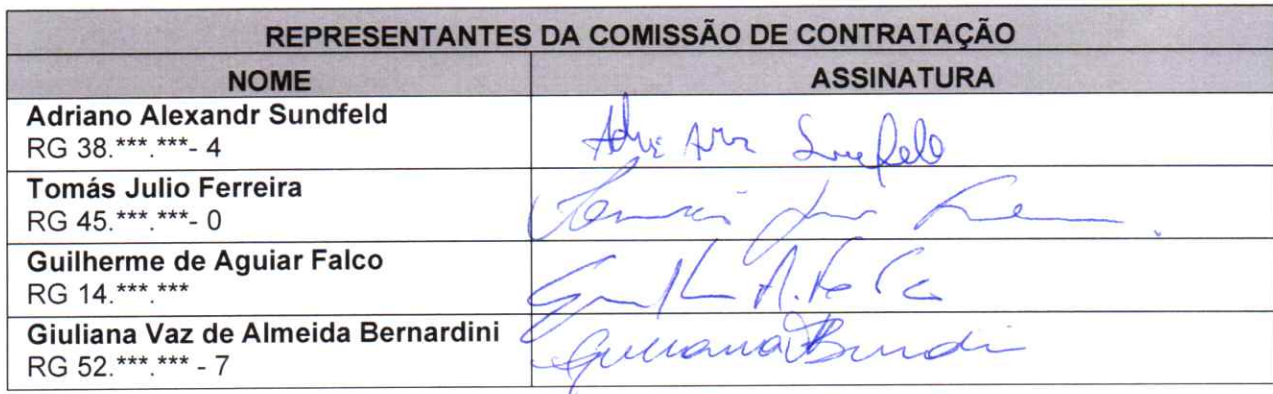 REPRESENTANTES DA COMISSÃO DE CONTRATAÇÃO
NOME ASSINATURA
Adriano Alexandr Sundfeld
RG 38.***.***- 4
Tomás Julio Ferreira
RG 45.***.***- 0
Guilherme de Aguiar Falco
RG 14.***.***
Giuliana Vaz de Almeida Bernardini
RG 52.***.*** - 7